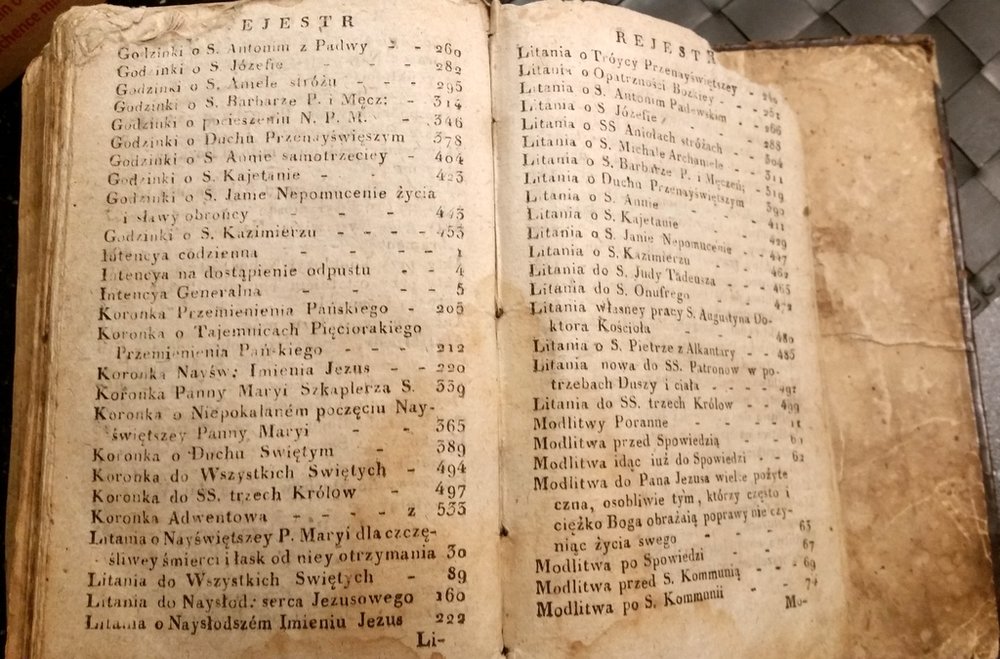 EJESTR
Godzinki o S. Antonim z Padwy - - 260
Godzinki o S. Józefie - - - 282
Godzinki o S. Aniele stróżu - - - 295
Godzinki o S. Barbarze P. i Męcz: - 314
Godzinki o pocieszeniu N. P. M. - 346
Godzinki o Duchu Przenayświęszym 378
Godzinki o S Annie samotrzeciey - 404
Godzinki o S. Kajetanie - - - 423
Godzinki o S. Janie Nepomucenie życia
i sławy obrońcy - - - 443
Godzinki o S. Kazimierzu - - - - 453
Intencya codzienna - - - - 1
Intencya na dostąpienie odpustu - - 4
Intencya Generalna - - - - 5
Koronka Przemienienia Pańskiego - 205
Koronka o Tajemnicach Pięciorakiego
Przemienienia Pańskiego - - - 212
Koronka Nayśw: Imienia Jezus - - 220
Koronka Panny Maryi Szkaplerza S. 339
Koronka o Niepokalaném poczęciu Nay-
świętszey Panny Maryi - - 365
Koronka o Duchu Swiętym - 389
Koronka do Wszystkich Swiętych - 494
Koronka do SS. trzech Królow - 497
Koronka Adwentowa - - - - z 533
Litania o Nayświętszey P. Maryi dla czczę-
śliwey śmierci i łask od niey otrzymania 30
Litania do Wszystkich Swiętych - 89
Litania do Naysłod: serca Jezusowego 160
Litania o Naysłodszém Imieniu Jezus 222
Li-
REJESTR
Litania o Tróycy Przenayświętszey -
Litania o Opatrzności Bozkiey - - 251
Litania o S. Antonim Padewskim - - 266
Litania o S Józefie - - - 288
Litania o SS Aniołach stróżach - - 304
Litania o S. Michale Archaniele - - 311
Litania o S. Barbarze P. i Męczeń; - 319
Litania o Duchu Przenayświętszym 390
Litania o S. Annie - - - 411
Litania o S. Kajetanie - - 429
Litania o S. Janie Nepomucenie - 447
Litania o S. Kazimierzu - - 462
Litania do S. Judy Tadeusza - - 465
Litania do S. Onufrego - - 472
Litania własney pracy S. Augustyna Do-
ktora Kościoła - - - 480
Litania o S. Pietrze z Alkantary - - 485
Litania nowa do SS. Patronow w po-
trzebach Duszy i ciała - - - - 492
Litania do SS. trzech Królow - - 499
Modlitwy Poranne - - - 11
Modlitwa przed Spowiedzią - -
Modlitwa idąc iuż do Spowiedzi - - 62
Modlitwa do Pana Jezusa wielce pożyte
czna, osobliwie tym, którzy często i
ciężko Boga obrażaią poprawy nie czy-
niąc życia swego - - - 65
Modlitwa po Spowiedzi - - - 67
Modlitwa przed S. Kommunią - - 69
Modlitwa po S. Kommunii - -
Mo-